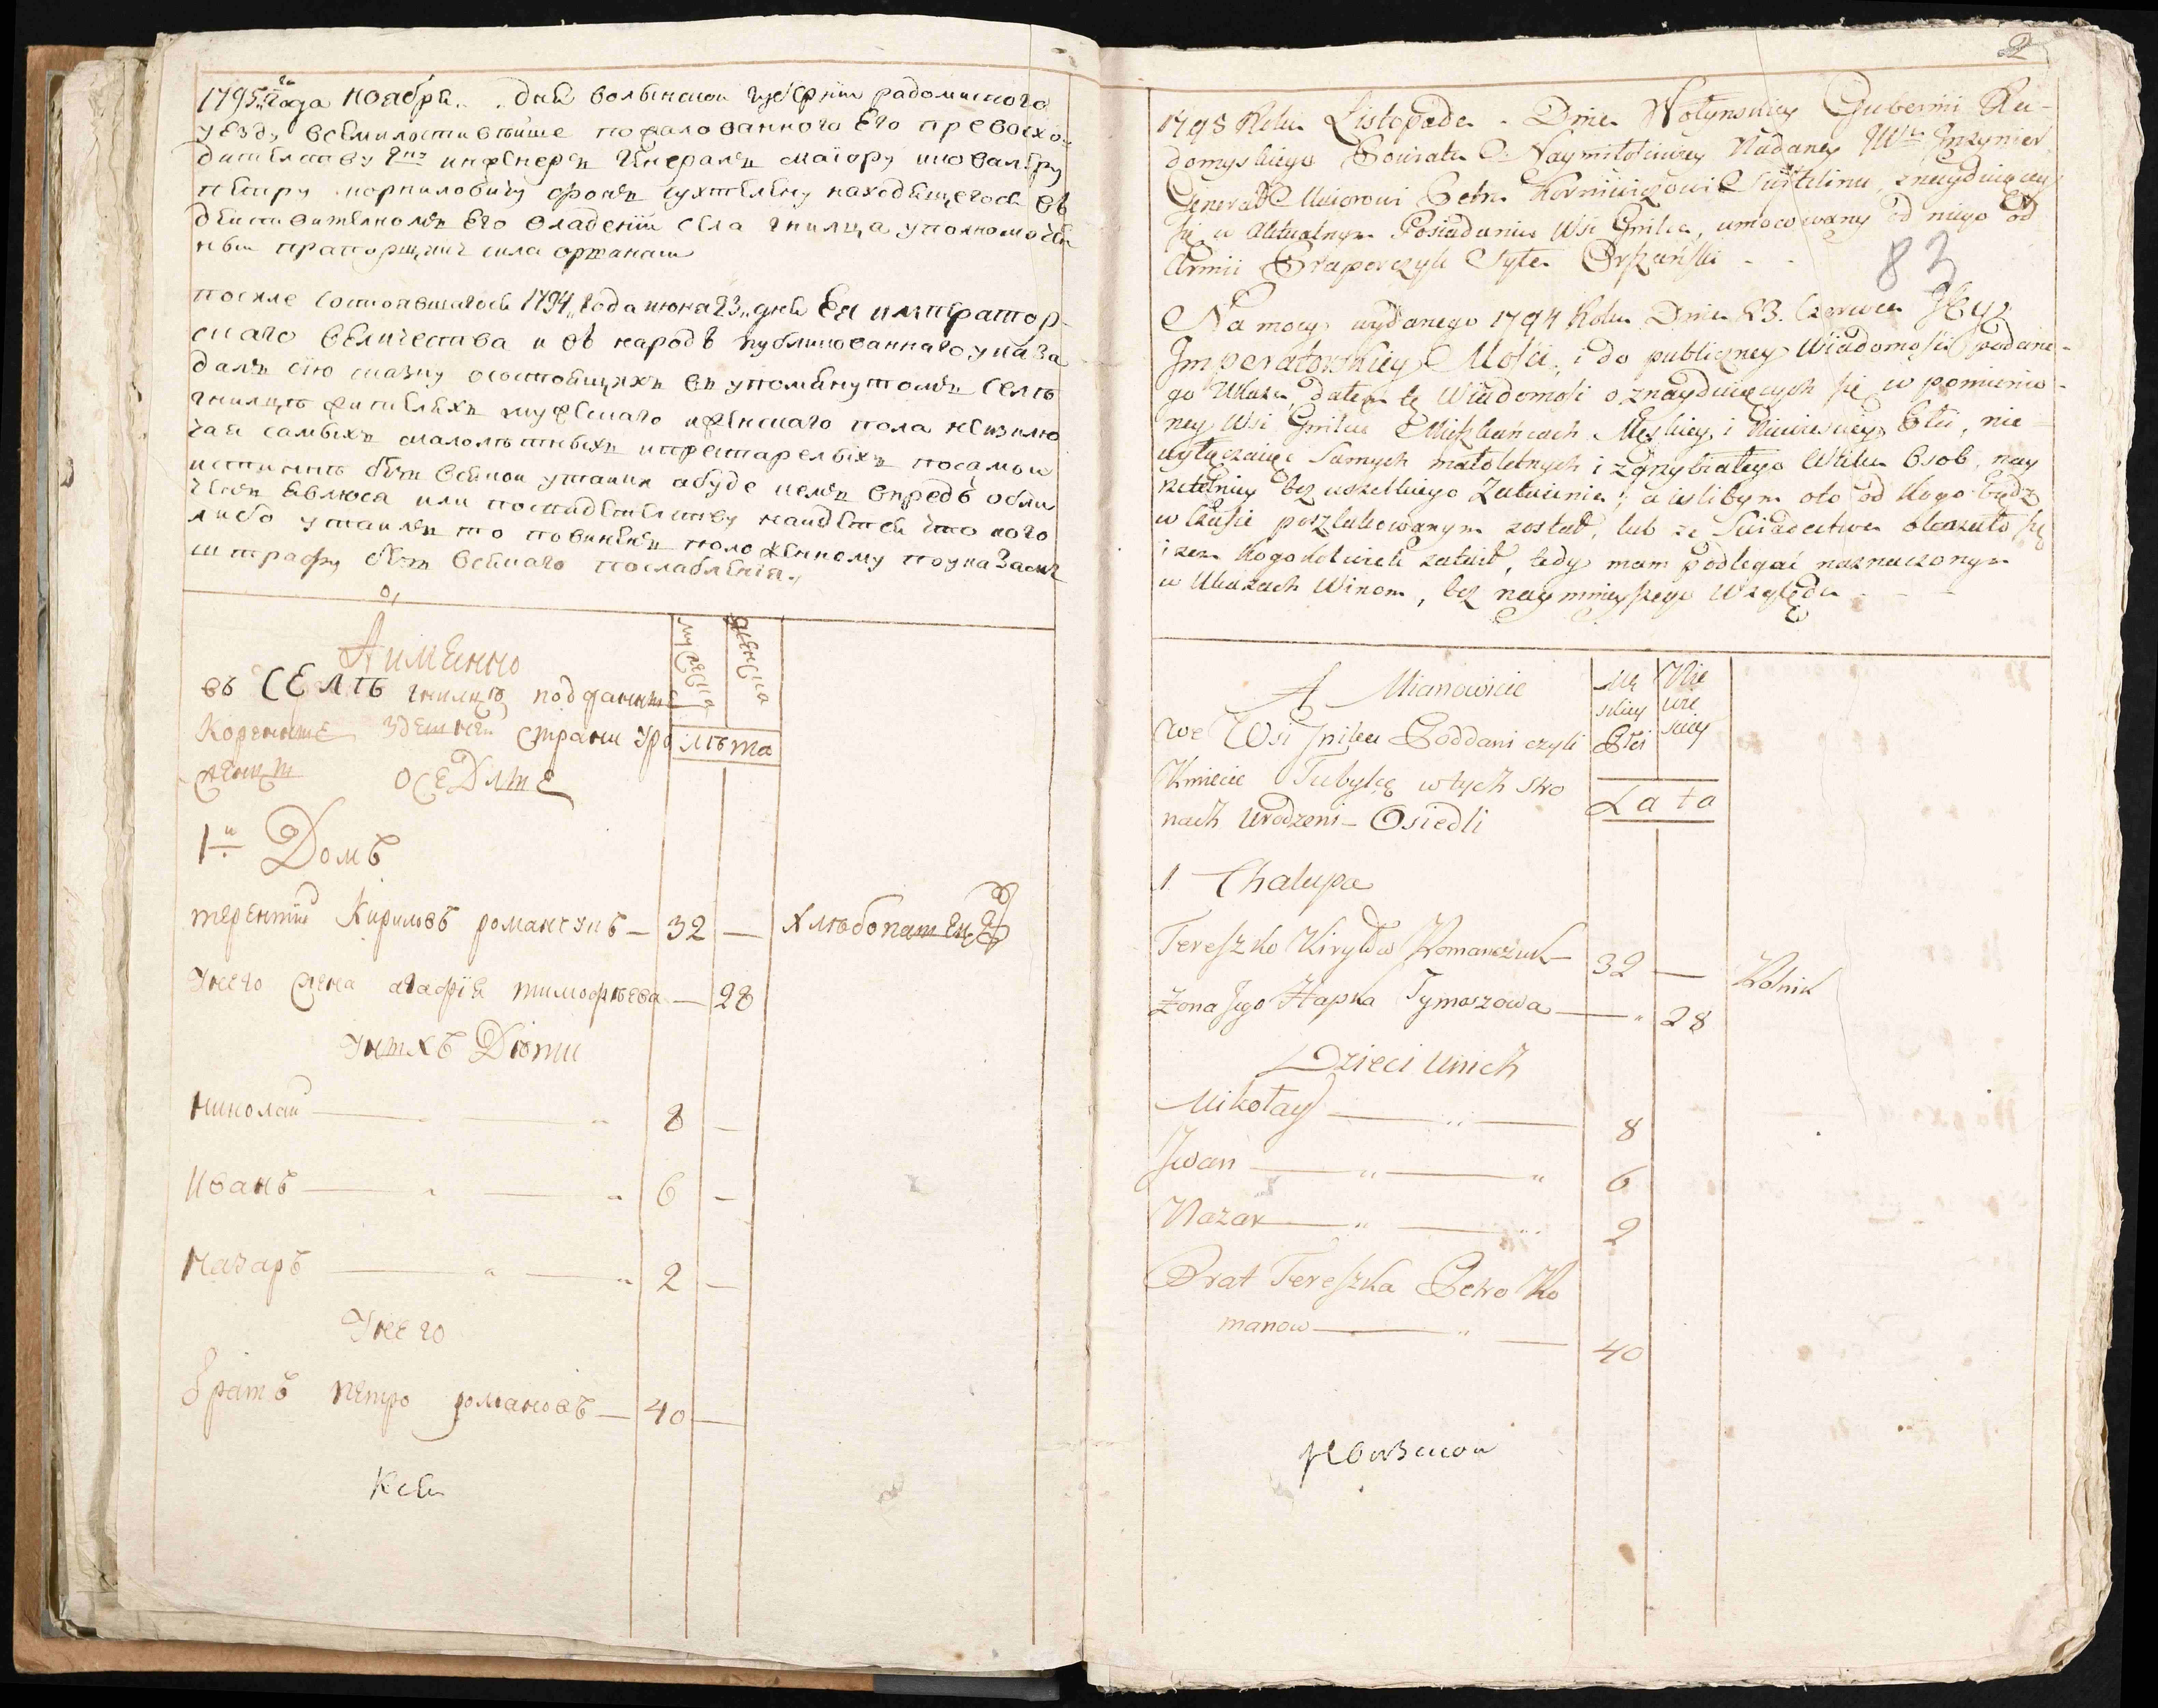 1795го года ноября . . дня волынской губернии радомиского
уезду всемилостивейше пожалованного Его превосхо-
дителству Гнз инженеръ генералъ маіору икавалеру
петру корниловичу фонъ сухтелену находящегося въ
действителномъ Его владеніи села гнилца уполномочен
ный прапорщикъ сила оржански
после состоявшагося 1794 года июня 23 дня Ея император-
скаго величества и въ народъ публикованнаго указа
далъ сію сказку осостоящихъ въ упомянутомъ селѣ
гнилцѣ жителяхъ мужескаго иженскаго пола неизклю
чая самыхъ малолѣтныхъ ипрестарелыхъ посамой
истиннѣ безъ всякой утайки абуде кемъ впредь обли
ченъ явлюся или посвидетелству найдется что кого
либо утаилъ то повиненъ положенному поуказамъ
штрафу безъ всякаго послабленія
Аименно
въ СЕЛѢ гнилцѣ подданные
Коренные здешней страни уро
женцы ОСЕДлые
мужеска
женска
лѣта
1й Домъ
терентий Кириловъ романчукъ — 32 — Хлѣбопашецъ
Унего жена агафія тимофѣева — 28
Унихъ Дѣти
николай — 8 —
Иванъ — 6 —
назаръ — 2 —
Унего
братъ петро романовъ — 40 —
К сей
2
1795 Roku Listopada . Dnia Wołynskiey Gubernii Ra-
domyskiego Powiatu Naymiłościwiey Nadaney JWu Inzynier
Generał Maiorowi Petru Korniłowiczowi Suchtelinu, znayduiącey
się w aktualnym Posiadaniu Wsi Gnilca, umocowany od niego od
Armii Praporczyk Syła Orżański - -
83
Na mocy wydanego 1794 Roku Dnia 23. Czerwca Jey
Imperatorskiey Mości, i do publiczney Wiadomości podane-
go Ukazu, dałem tę Wiadomość o znayduiących się w pomienio-
ney Wsi Gnilcu Mieszkańcach Męskiey i Niewieściey Płci, nie
wyłączaiąc Samych małoletnych i zgrzybiałego Wieku Osob, nay
rzetelniey bez wszelkiego Zataienia; a iesliby oto od kogo bądz
w czasie poszlakowanym został, lub ze Swiadectwa okazało się
izem kogokolwiek zataił, tedy mam podlegać naznaczonym
w Ukazach Winom, bez naymnieyszego Względu - - -
A Mianowicie
we Wsi Gnilcu Poddani czyli
Kmiecie Tubylcę w tych stro
nach Urodzeni - Osiedli
Mę
skiey
Płci
Nie
wie
sciey
Lata
1 Chalupa
Tereszko Kiryłow Romanczuk — 32 — Rolnik
Zona Jego Hapka Tymoszowa — 28
Dzieci Unich
Mikołay — 8
Jwan — 6
Nazar — 2
Brat Tereszka Petro Ro
manow — 40